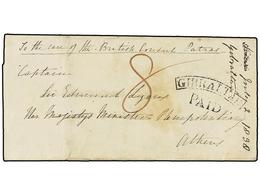 To the care of the British Consul Patras
Captain
8
GIBRALTAR
PAID
Sir Edmund Lyons
Her Majestys Minister Plenipotentiary
Athens
Gibraltar